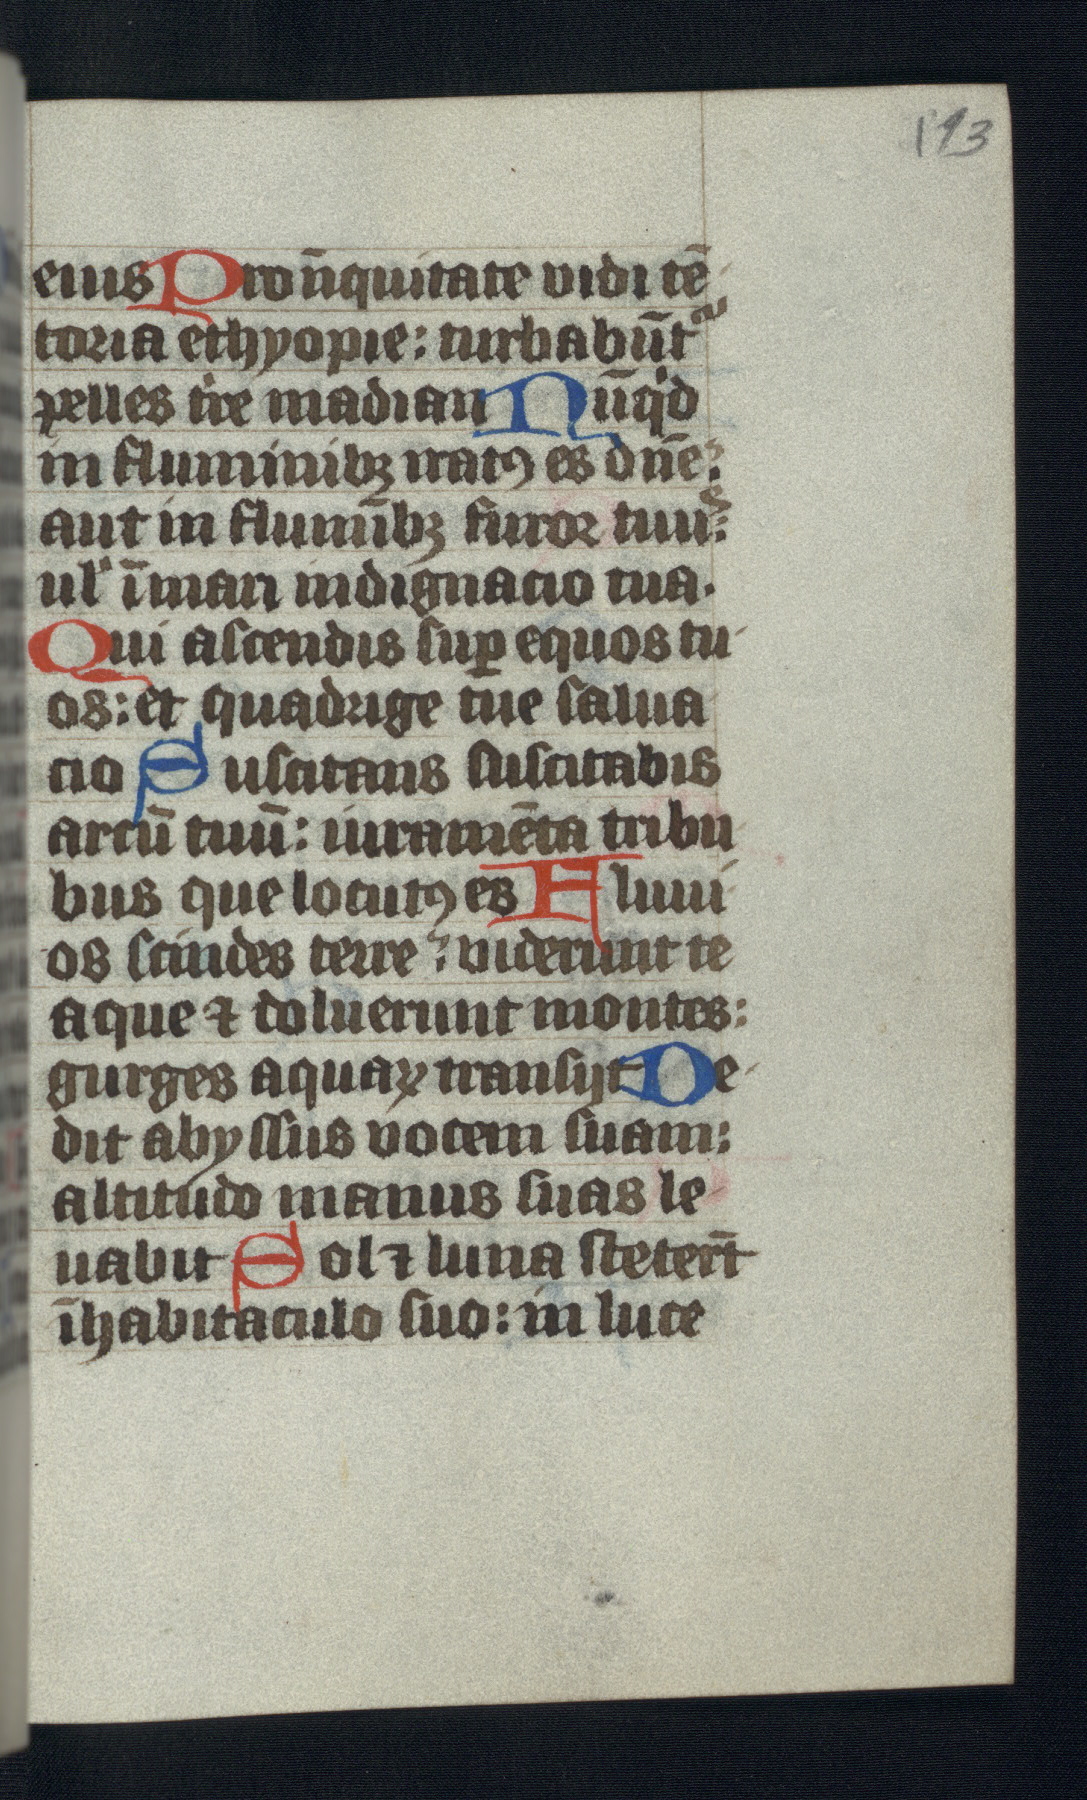 193
eius Pro iniquitate vidi tē
toria ethyopie: turbabūtʳ
pelles tr̄e madian Nūqͥd
in fluminibꝫ iratꝰ es dn̄e:
aut in flumīibꝫ furor tuus:
ul̓ ī mari indignacio tua.
Qui ascendis suꝑ equos tu
os: et quadrige tue salua
cio Suscitans suscitabis
arcū tuū: iuramēta tribu
bus que locutꝰ es Fluui
os scindes terre: viderunt te
aque ⁊ doluerunt montes:
gurges aquaꝝ transijt De
dit abyssus vocem suam:
altitudo manus suas le
uabit Sol ⁊ luna stetert̄
ī habitaculo suo: in luce